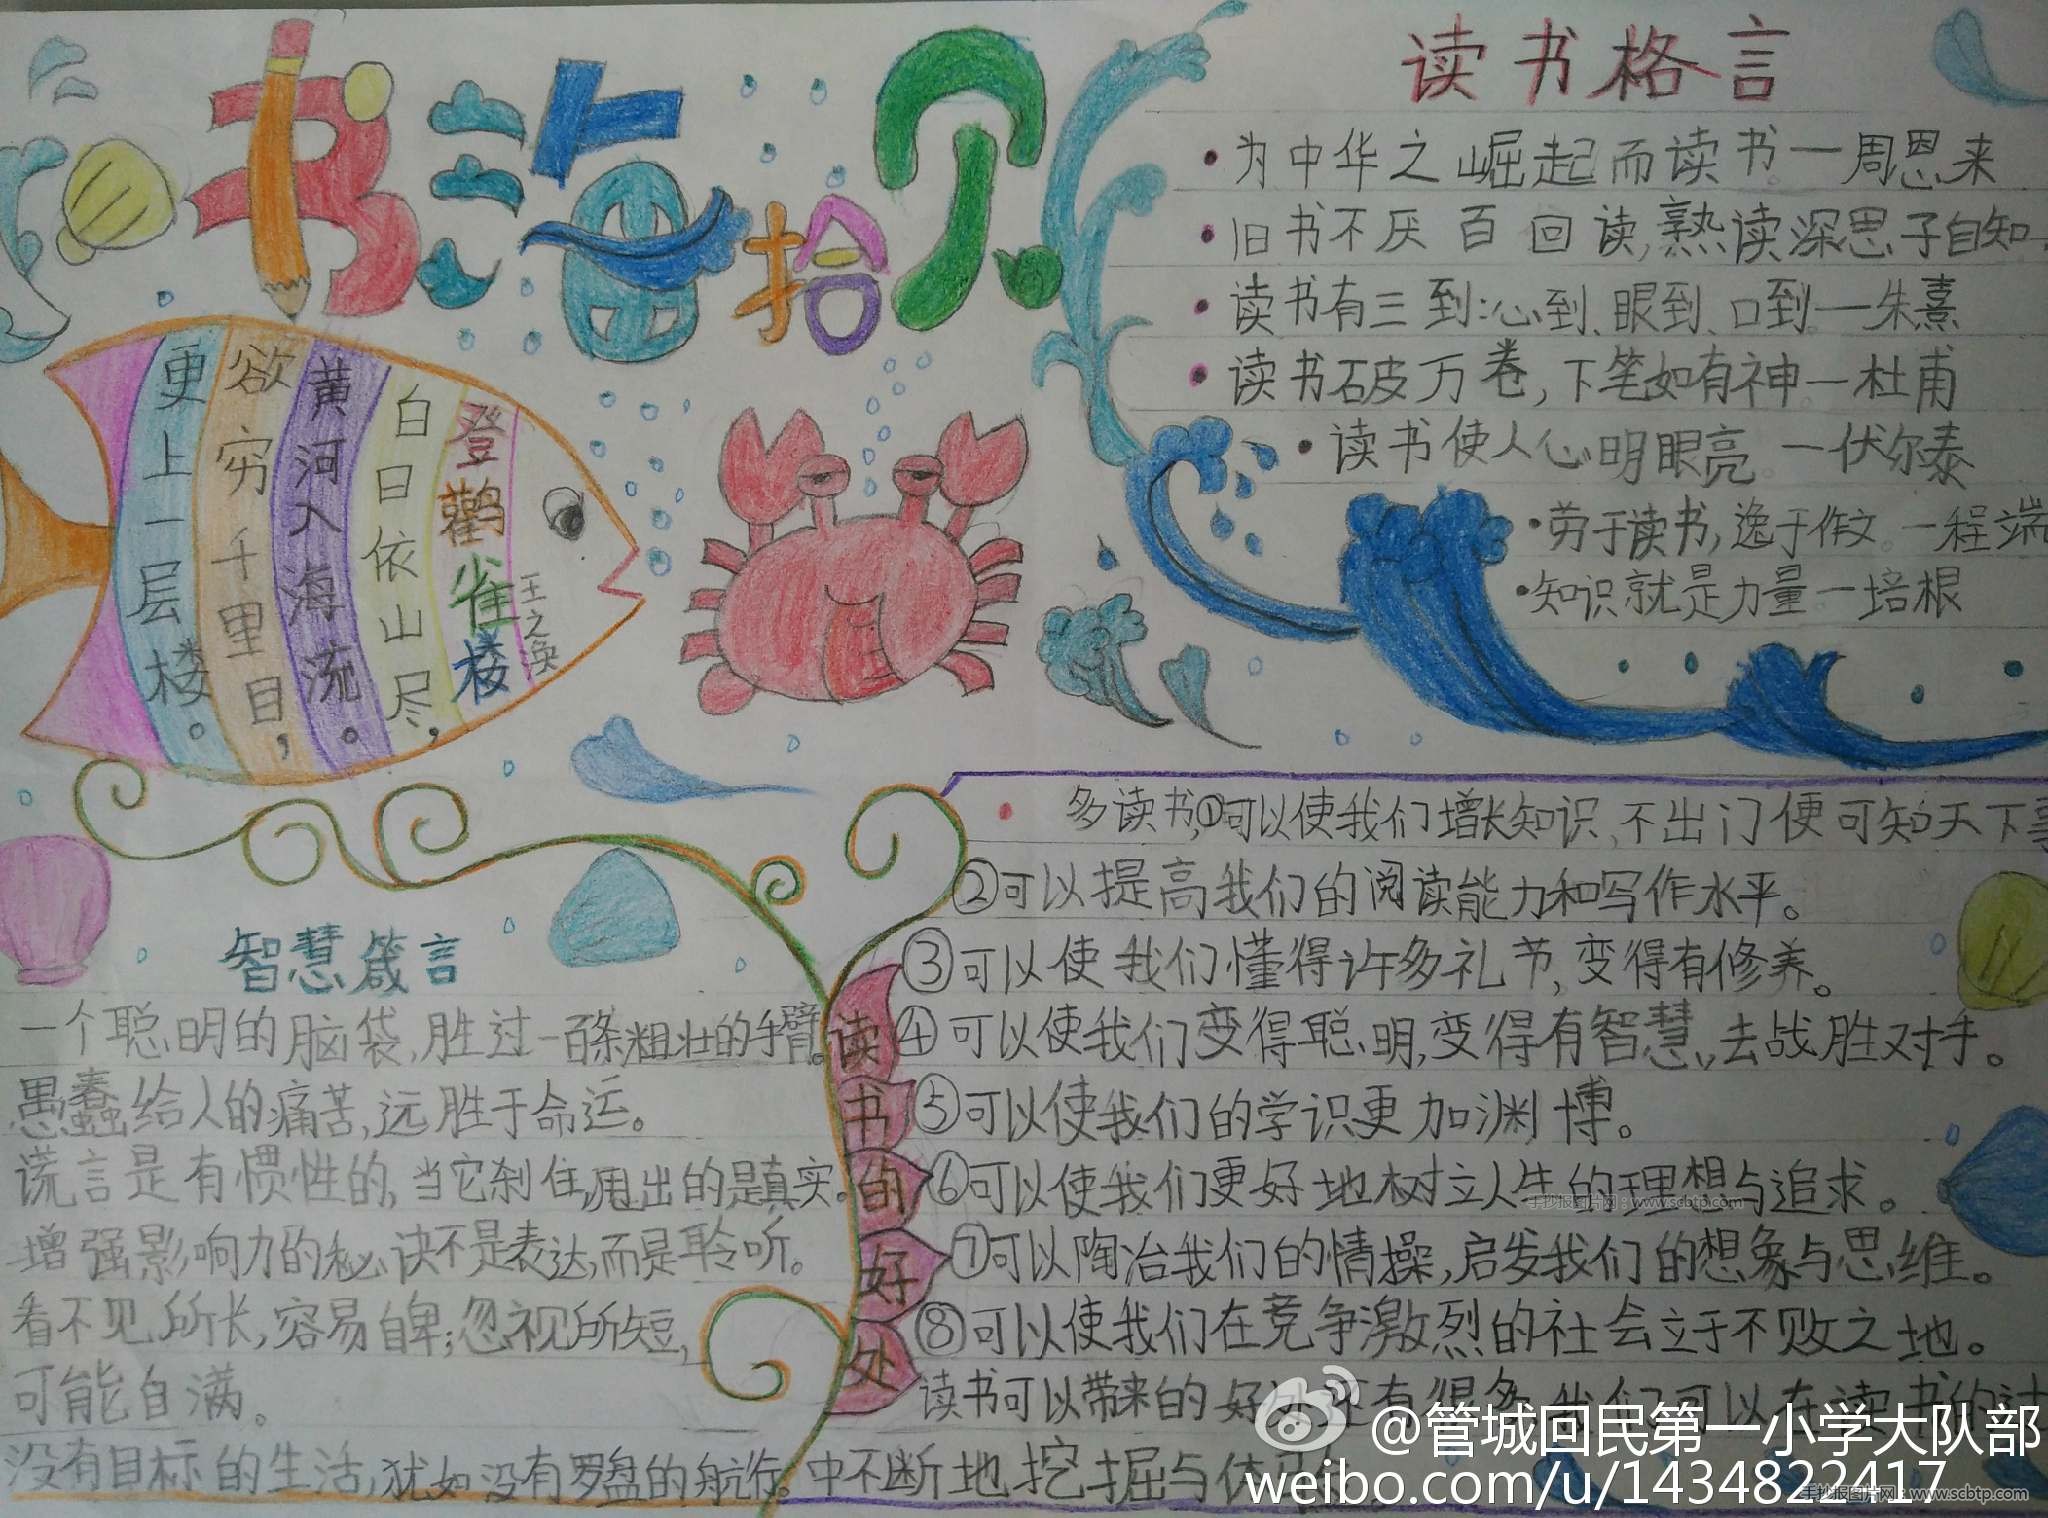 书海拾贝
读书格言
为中华之崛起而读书一周恩来
旧书不厌百回读,熟读深思子自知.
读书有三到:心到、眼到、口到.一朱熹
读书破万卷,下笔如有神一杜甫
读书使人心明眼亮。一伏尔泰
劳于读书,逸于作文。一程端
知识就是力量一培根
登鹳雀楼
王之涣
白日依山尽,
黄河入海流。
欲穷千里目,
更上一层楼。
智慧箴言
一个聪明的脑袋,胜过一百条粗壮的手臂。
愚蠢给人的痛苦,远胜于命运。
谎言是有惯性的,当它刹住,甩出的是真实。
增强影响力的秘诀不是表达,而是聆听。
看不见所长,容易自卑;忽视所短,
可能自满。
没有目标的生活,犹如没有罗盘的航行。
读书的好处
多读书,①可以使我们增长知识,不出门便可知天下事
②可以提高我们的阅读能力和写作水平。
③可以使我们懂得许多礼节,变得有修养。
④可以使我们变得聪明,变得有智慧,去战胜对手。
⑤可以使我们的学识更加渊博。
⑥可以使我们更好地树立人生的理想与追求。
⑦可以陶冶我们的情操,启发我们的想象与思维。
⑧可以使我们在竞争激烈的社会立于不败之地。
读书可以带来的好处还有得多,我们可以在读书的过
中不断地挖掘与体
手抄报图片网:www.scbtp.com
@管城回民第一小学大队部
weibo.com/u/1434822417
手抄报图片网:www.scbtp.com